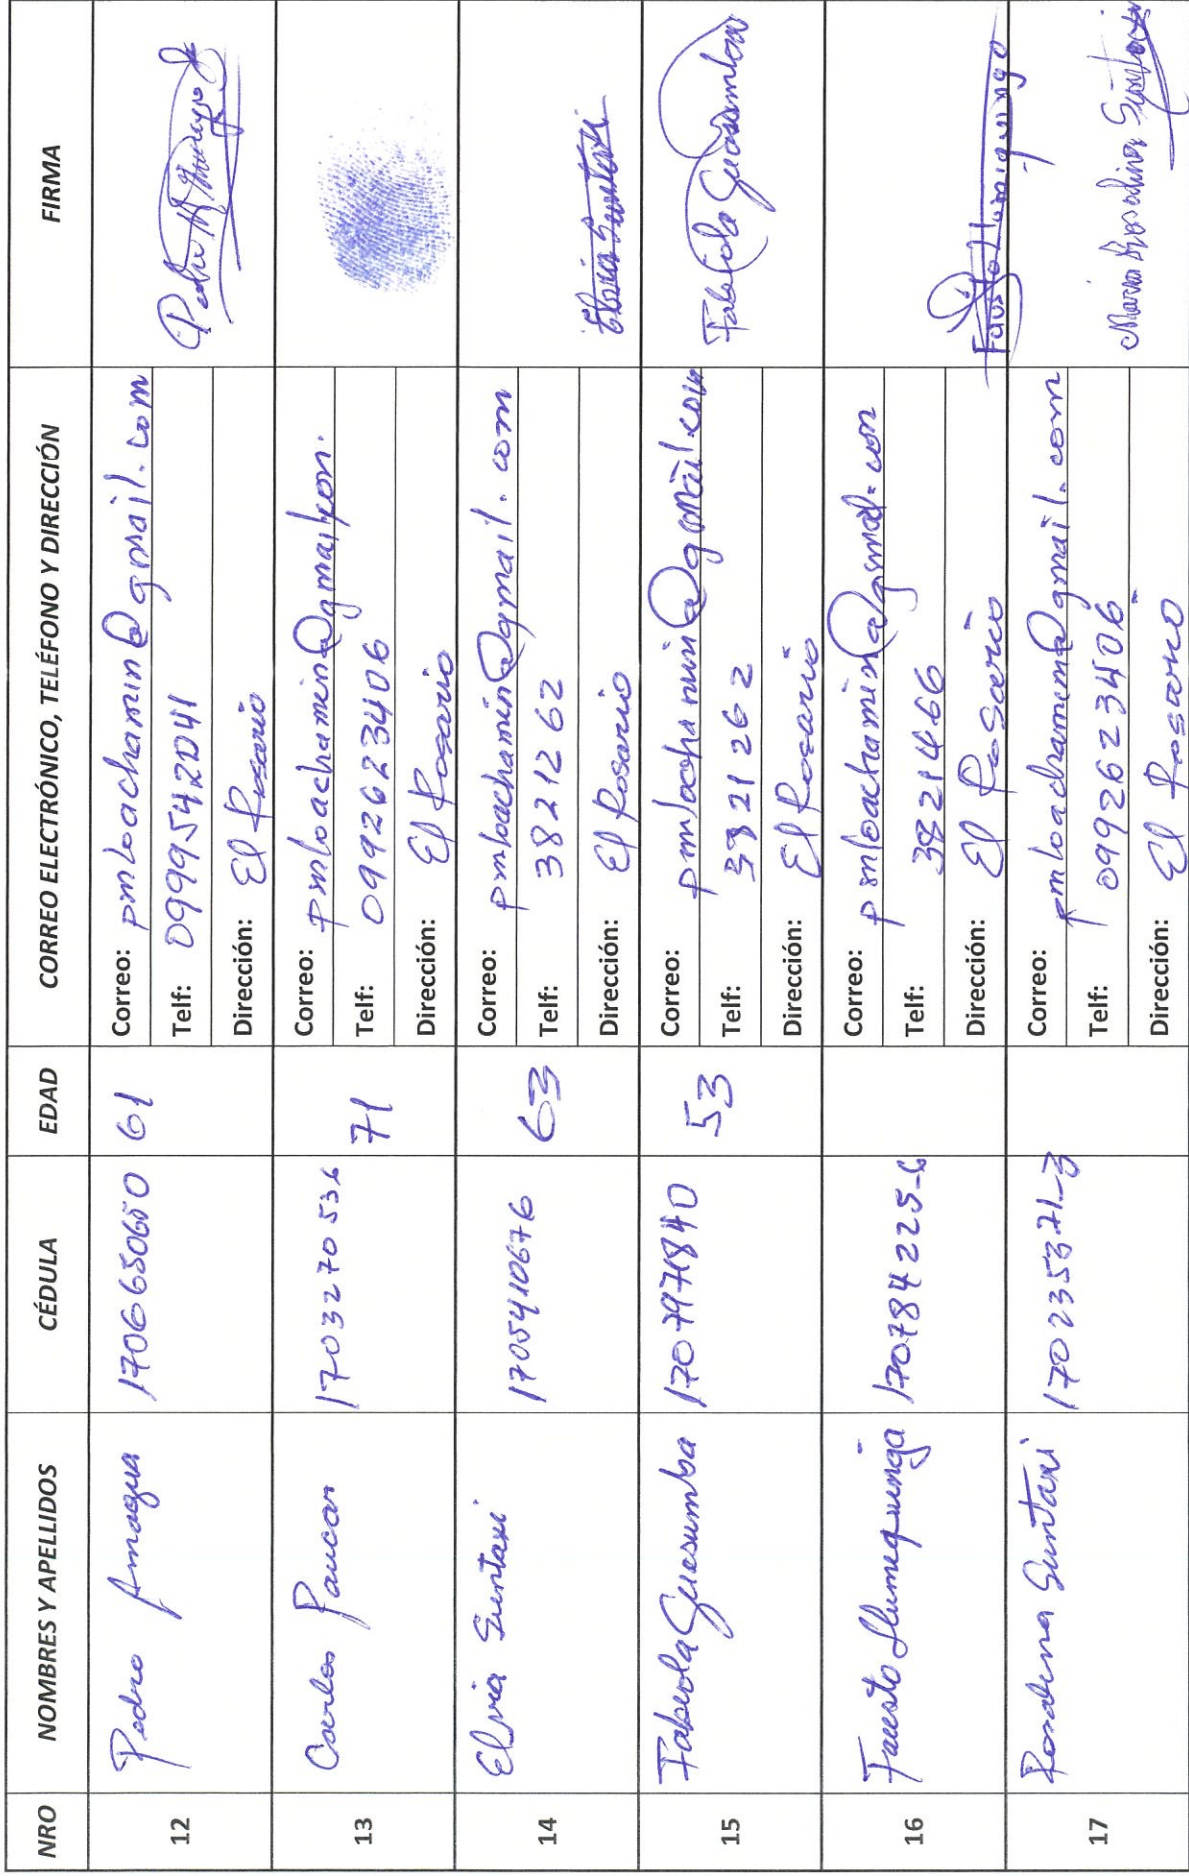 NRO NOMBRES Y APELLIDOS CÉDULA EDAD CORREO ELECTRÓNICO, TELÉFONO Y DIRECCIÓN FIRMA
12 Pedro Amagua 1706650650 61
Correo: pmloachamin@gmail.com
Telf: 0999542041
Dirección: El Rosario
13 Carlos Paucar 1703270536 71
Correo: pmloachamin@gmail.com.
Telf: 0992623406
Dirección: El Rosario
14 Elvia Suntaxi 1705410676 63
Correo: pmloachamin@gmail.com
Telf: 3821262
Dirección: El Rosario
Elvia Suntaxi
15 Fabiola Guasumba 1707971840 53
Correo: pmloachamin@gmail.com
Telf: 3821262
Dirección: El Rosario
Fabiola Guasumba
16 Fausto Llumiquinga 170784225-6
Correo: pmloachamin@gmail.com
Telf: 3821466
Dirección: El Rosario
Fausto Llumiquinga
17 Rosalina Suntaxi 170235371-3
Correo: pmloachamin@gmail.com
Telf: 0992623406
Dirección: El Rosario
Maria Rosalina Suntaxi